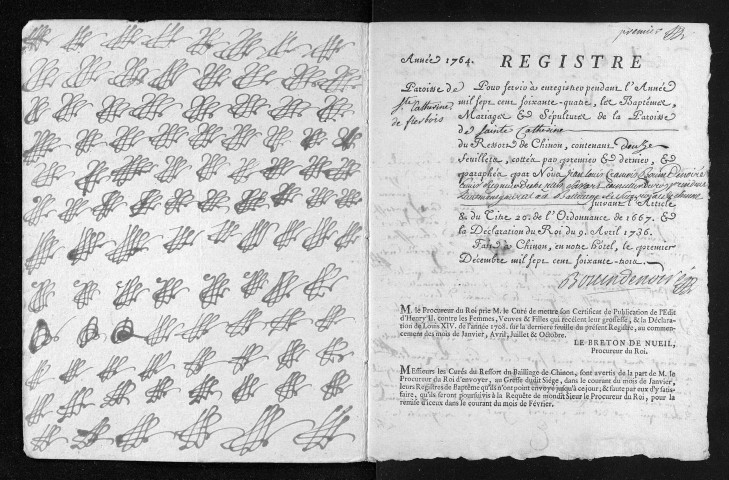 premier
Année 1764.
REGISTRE
Paroisse de
Ste Catherine
de fierbois
Pour servir à enregistrer pendant l'Année
mil sept cent soixante-quatre, les Baptêmes,
Mariages & Sépultures de la Paroisse
de Sainte Catherine
du Ressort de Chinon, contenant douze
Feuillets, cottés par premier et dernier, &
paraphés par Nous
suivant l'Article
8 du Titre 20. de l'Ordonnance de 1667. &
la Déclaration du Roi du 9. Avril 1736.
Fait à Chinon, en notre hôtel, le premier
Décembre mil sept cent soixante-trois.
M. le Procureur du Roi prie M. le Curé de mettre son Certificat de Publication de l'Edit
d'Henry II. contre les Femmes, Veuves & Filles qui recélent leur grossesse, & la Déclara-
tion de Louis XIV. de l'année 1708. sur la derniere feuille du présent Registre, au commen-
cement des mois de Janvier, Avril, Juillet & Octobre.
LE BRETON DE NUEIL,
Procureur du Roi.
Messieurs les Curés du Ressort du Bailliage de Chinon, sont avertis de la part de M. le
Procureur du Roi d'envoyer, au Greffe dudit Siége, dans le courant du mois de Janvier,
leurs Registres de Baptême qu'ils n'ont point envoyé jusqu'à ce jour; & faute par eux d'y satis-
faire, qu'ils seront poursuivis à la Requête de mondit Sieur le Procureur du Roi, pour la
remise d'iceux dans le courant du mois de Février.